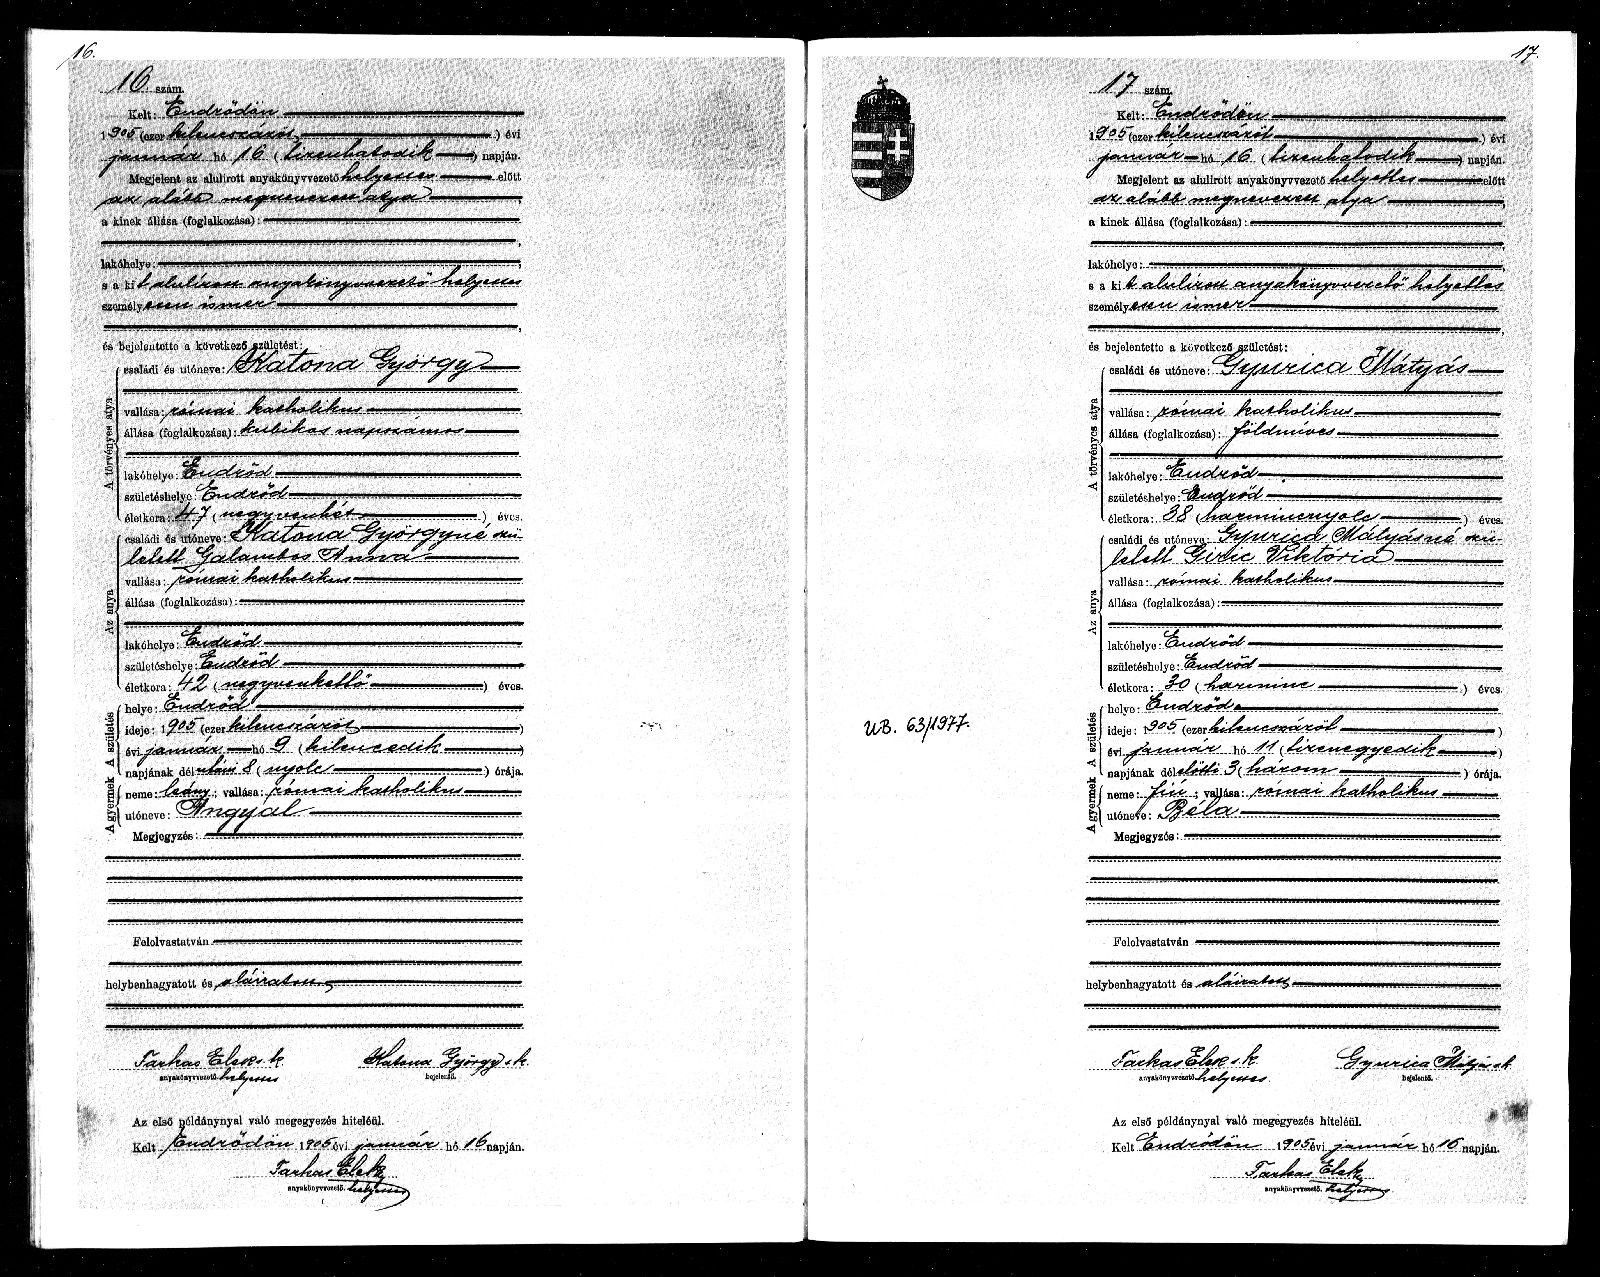 16.
16 szám.
Kelt: Endrődön
1905 (ezer kilencszázöt) évi
január hó 16 (tizenhatodik) napján.
Megjelent az alulirott anyakönyvvezető helyettes előtt
az alább megnevezett atya
a kinek állása (foglalkozása):
lakóhelye:
s a kit alulírott anyakönyvvezető helyettes
személyesen ismer
és bejelentette a következő születést:
A törvényes atya
családi és utóneve: Katona György
vallása: római katholikus
állása (foglalkozása): kubikos napszámos
lakóhelye: Endrőd
születéshelye: Endrőd
életkora: 47 (negyvenhét) éves.
Az anya
családi és utóneve: Katona Györgyné szü-
letett Galambos Anna
vallása: római katholikus
állása (foglalkozása):
lakóhelye: Endrőd
születéshelye: Endrőd
életkora: 42 (negyvenkettő) éves.
A születés
helye: Endrőd
ideje: 1905 (ezer kilencszázöt)
évi január hó 9 (kilencedik)
napjának délutáni 8 (nyolc) órája.
A gyermek
neme: leány; vallása: római katholikus
utóneve: Angyal
Megjegyzés:
Felolvastatván
helybenhagyatott és aláíratott
Farkas Elek s. k. Katona György s. k.
anyakönyvvezető. helyettes bejelentő.
Az első példánynyal való megegyezés hiteléül.
Kelt Endrődön 1905 évi január hó 16 napján.
Farkas Elek
anyakönyvvezető. helyettes
17.
17 szám.
Kelt: Endrődön
1905 (ezer kilencszázöt) évi
január hó 16 (tizenhatodik) napján.
Megjelent az alulirott anyakönyvvezető helyettes előtt
az alább megnevezett atya
a kinek állása (foglalkozása):
lakóhelye:
s a kit alulírott anyakönyvvezető helyettes
személyesen ismer
és bejelentette a következő születést:
A törvényes atya
családi és utóneve: Gyurica Mátyás
vallása: római katholikus
állása (foglalkozása): földmíves
lakóhelye: Endrőd
születéshelye: Endrőd
életkora: 38 (harmincnyolc) éves.
Az anya
családi és utóneve: Gyurica Mátyásné szü-
letett Giric Viktória
vallása: római katholikus
állása (foglalkozása):
lakóhelye: Endrőd
születéshelye: Endrőd
életkora: 30 (harminc) éves.
A születés
helye: Endrőd
ideje: 1905 (ezer kilencszázöt)
UB. 63/1977.
évi január hó 11 (tizenegyedik)
napjának délelőtti 3 (három) órája.
A gyermek
neme: fiú; vallása: római katholikus
utóneve: Béla
Megjegyzés:
Felolvastatván
helybenhagyatott és aláíratott
Farkas Elek s. k. Gyurica Mátyás s. k.
anyakönyvvezető. helyettes bejelentő.
Az első példánynyal való megegyezés hiteléül.
Kelt Endrődön 1905 évi január hó 16 napján.
Farkas Elek
anyakönyvvezető. helyettes